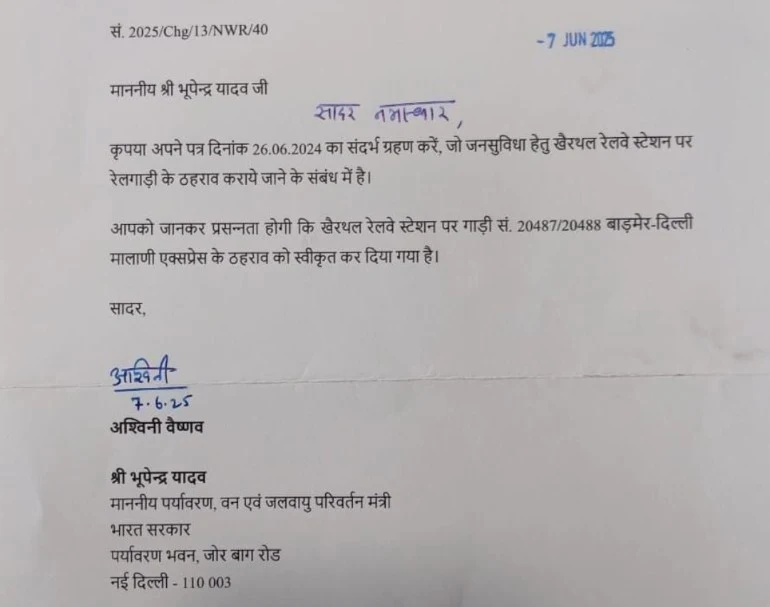 सं. 2025/Chg/13/NWR/40
-7 JUN 2025
माननीय श्री भूपेन्द्र यादव जी
सादर नमस्कार,
कृपया अपने पत्र दिनांक 26.06.2024 का संदर्भ ग्रहण करें, जो जनसुविधा हेतु खैरथल रेलवे स्टेशन पर
रेलगाड़ी के ठहराव कराये जाने के संबंध में है।
आपको जानकर प्रसन्नता होगी कि खैरथल रेलवे स्टेशन पर गाड़ी सं. 20487/20488 बाड़मेर-दिल्ली
मालाणी एक्सप्रेस के ठहराव को स्वीकृत कर दिया गया है।
सादर,
अश्विनी
7.6.25
अश्विनी वैष्णव
श्री भूपेन्द्र यादव
माननीय पर्यावरण, वन एवं जलवायु परिवर्तन मंत्री
भारत सरकार
पर्यावरण भवन, जोर बाग रोड
नई दिल्ली - 110 003